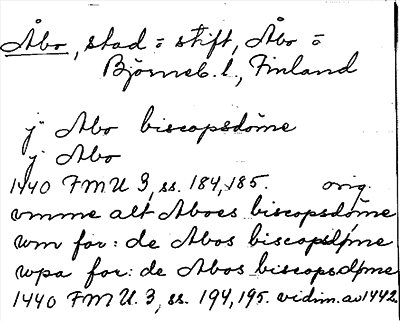 Åbo, stad = o stift, Åbo = o
Björneb. l., Finland
j Abo biscopsdôme
j Abo
1440 FMU 3, ss. 184, 185. orig.
vmme alt Aboes biscopsdôme
wm for: de Abos biscopsdøme
wpa for: de Abos biscopsdøme
1440 FMU. 3, ss. 194, 195. vidim. av 1442.